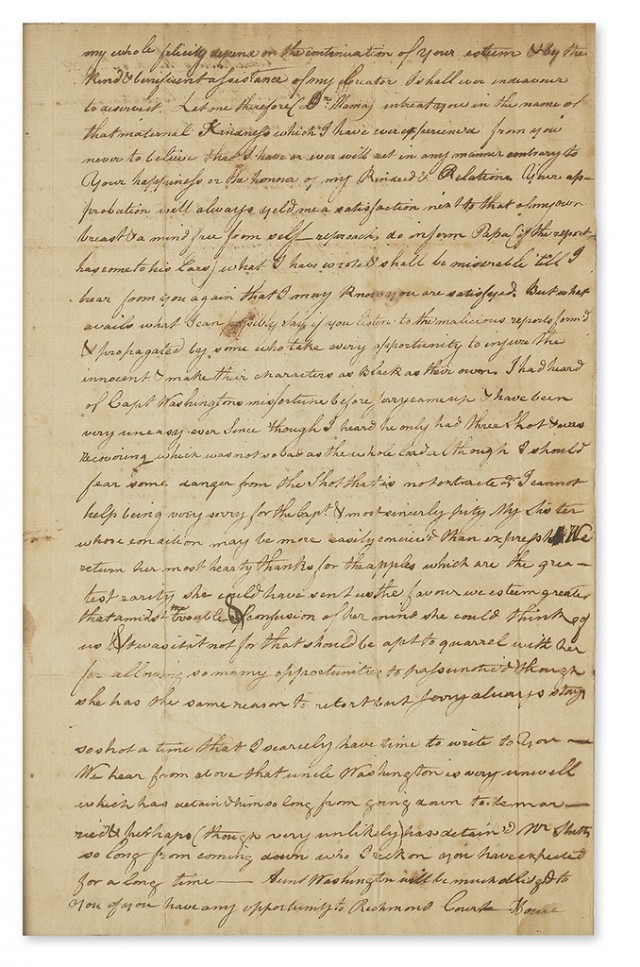 my whole felicity depend on the continuation of your esteem & by the
kind & beneficent assistance of my Creator I shall ever endeavour
to deserve it. Let me therefore (Dr. Mama) intreat you in the name of
that maternal Kindness which I have ever experienced from you
never to believe that I have or ever will act in any manner contrary to
Your happiness or the honour of my Kindred & Relations Your ap-
probation will always yeld me a satisfaction next to that of my own
breast & a mind free from self-reproach, do inform Papa (if the report
has come to his Ears) what I have wrote & shall be miserable 'till I
hear from you again that I may know you are satisfyed. But what
avails what I can possibly say, if you listen to the malicious reports form'd
& propagated by some who take every opportunity to injure the
innocent & make their characters as Black as their own. I had heard
of Capt Washingtons misfortune before Jerry came up & have been
very uneasy ever Since though I heard he only had three Shot & was
recovering which was not so bad as the whole load although I should
fear some danger from the Shot that is not extracted. I cannot
help being very sorry for the Capt. & most sincerly pity My Sister
whose condition may be more easily conciev'd than express'd We
return her most hearty thanks for the apples which are the grea-
test rarity she could have sent us the favour we esteem greater
that amidst ye trouble & Confusion of her mind she could think of
us & was it not for that should be apt to quarrel with her
for allowing so many opportunities to pass unotic'd though
she has the same reason to retort but Jerry always stays
so shot a time that I scarcely have time to write to You —
We hear from above that uncle Washington is very unwell
which has detain'd him so long from going down to be mar-
ried & perhaps (though very unlikely) has detain'd Mr
so long from coming down who I reckon you have expected
for a long time — Aunt Washington will be much oblig'd to
You if you have any opportunity to Richmond Court House